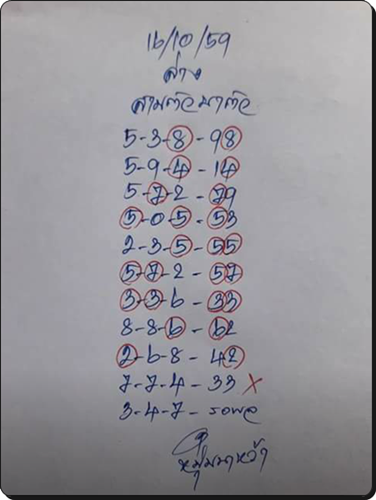 16/10/59
ล่าง
สามตัวมาตัว
5-3-8-98
5-9-4-14
5-7-2-79
5-0-5-53
2-3-5-55
5-7-2-57
3-3-6-33
8-8-6-62
2-6-8-42
7-7-4-33 X
3-4-7-รอผล